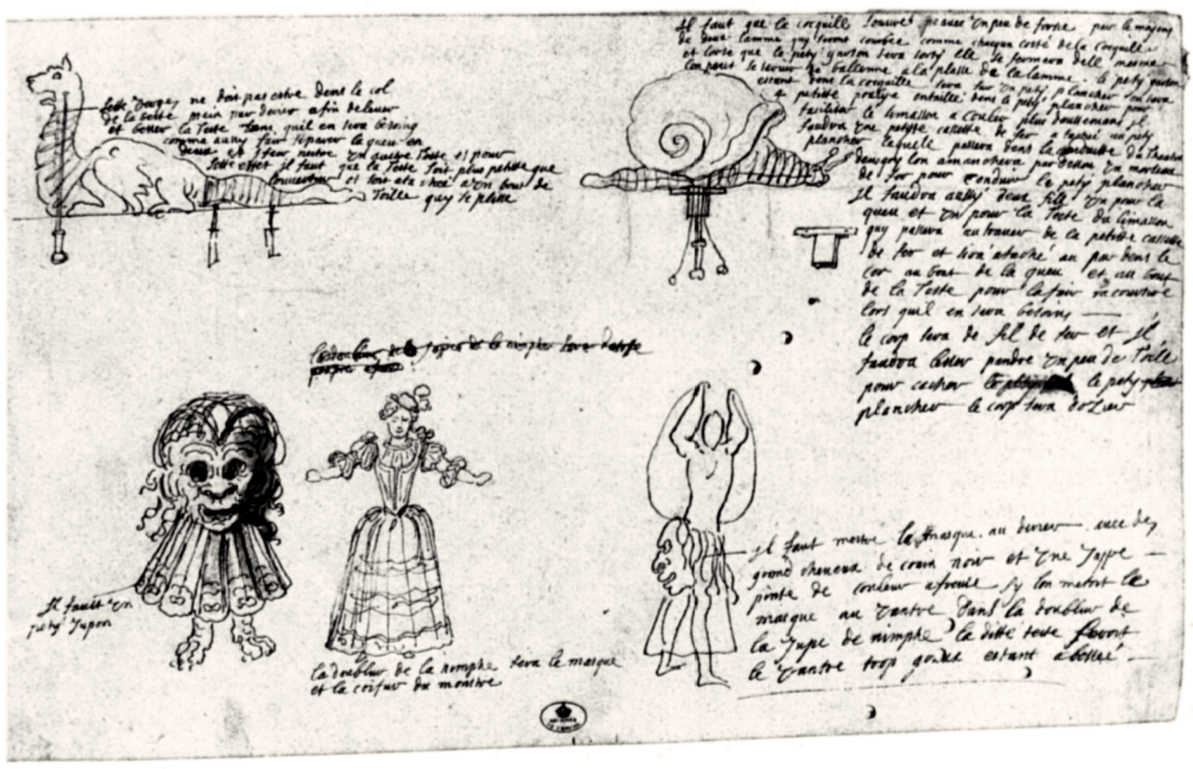 ne doit pas estre dens le col
de la teste mein par derier afin de lever
et besser la teste sens quil en sera besoing
comme aussy fair separer la queu en
deux et oster neitre un autre teste et pour
set effet il faut que la teste soit plus petitte que
louverture et soit atachee a un bout de
toille quy se plisse
Il faut que la coquille souvre avec un peu de force par le moyen
de deux lamme quy seront courbee comme chaque costé de la coquille
et lorse que le petit garson sera sorty elle se fermera dell mesme
lon peut se servir de ballenne a la plasse de la lamme. le petit garson
estant dans la coquille sera sur un petit plancher en sera
4 petitte poulye entaillé dens le petit plancher pour
faciliter le limasson a couler plus doucement il
faudra une petitte cassette de fer atasché au petit
plancher laquelle passera dans la du theatre
desous on un morceau
de fer pour conduire le petit plancher
Il faudra aussy deux fille un pour la
queu et un pour la teste du limasson
quy passera au traver de la petitte cassette
de fer et sera ataché au par dens le
cor au bout de la queu et au bout
de la teste pour la fair racoursire
lors quil en sera besoins
le corp sera de fil de fer et il
faudra lesser pendre un peu de toille
pour cacher le petit
plancher le corp sera dozier
la doublur de la jupes de la nimphe sera
Il faut un
petit jupon
la doublur de la nimphe sera le masque
et la coifur du monstre
Il faut mestre le masque au derier avec des
grand cheveux de crain noir et une juppe
pinte de couleur afreuse sy lon metoit le
masque au vantre dans la doublur de
la jupe de nimphe la ditte teste feroit
le vantre trop gosse estant abessé